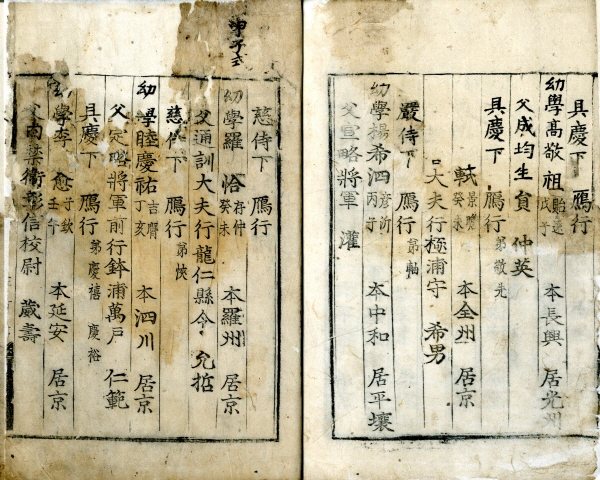 具慶下 鴈行
幼學高敬祖 貽遠 戊子 本長興 居光州
父成均生員 仲英
具慶下 鴈行 弟敬先
軾 景瞻 癸未 本全州 居京
大夫行極浦守 希男
嚴侍下 鴈行 弟軸
幼學楊希泗 彦沂 丙子 本中和 居平壤
父宣略將軍 灌
慈侍下 鴈行
幼學羅恰 存仲 癸未 本羅州 居京
父通訓大夫行龍仁縣令 允哲
慈侍下 鴈行 弟悏
幼學睦慶祐 吉胥 丁亥 本泗川 居京
父定略將軍前行鉢浦萬戶 仁範
具慶下 鴈行 弟慶禧 慶裕
學李愈 子欽 壬午 本延安 居京
父丙葉衛彰信校尉 葳壽